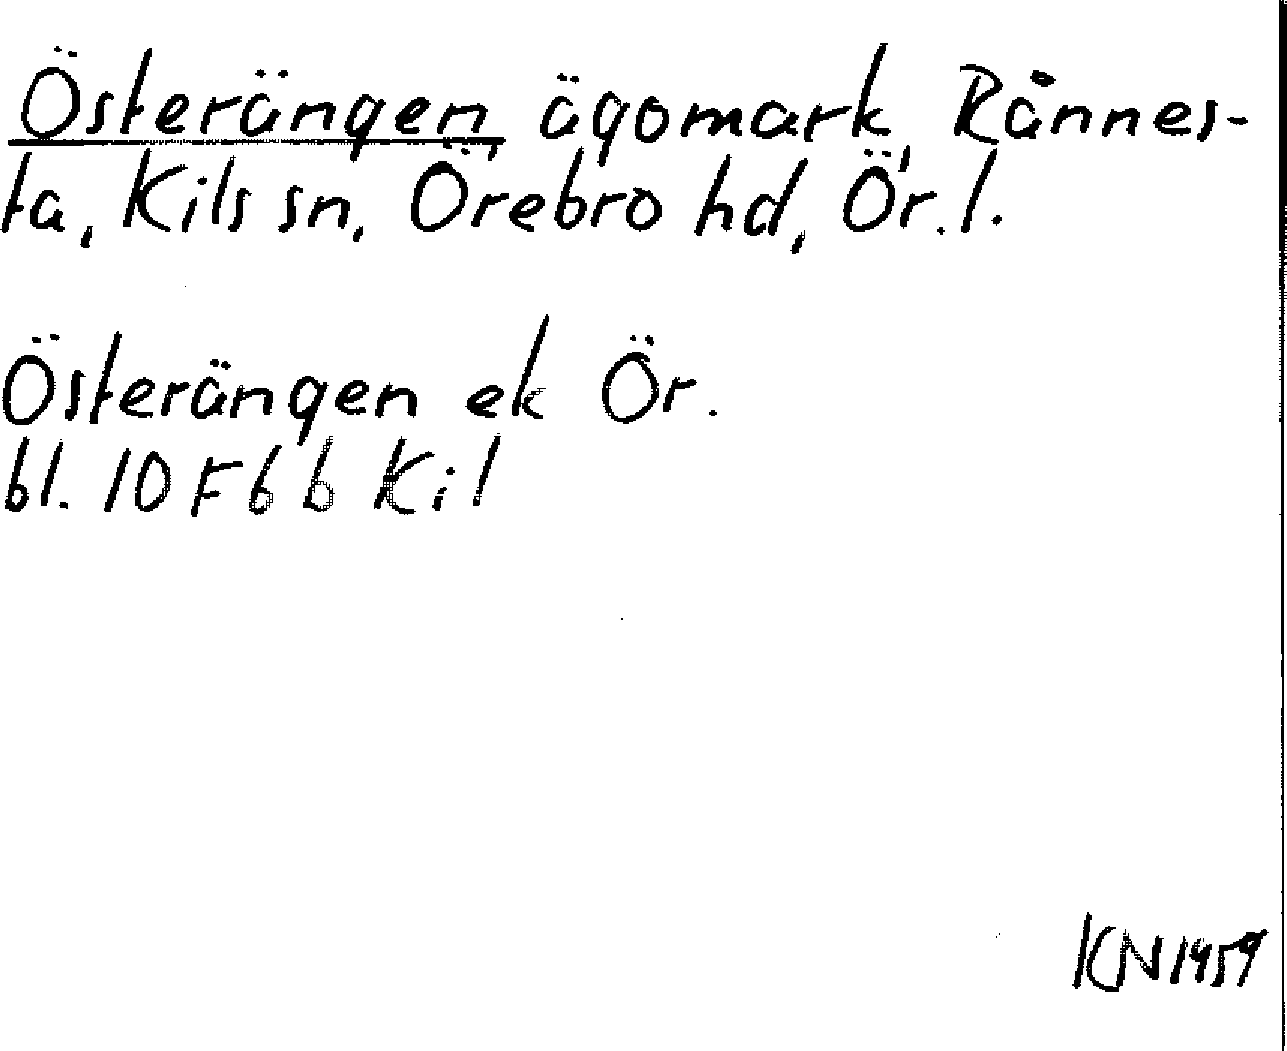 Österängen, ägomark, Rånnes-
ta, Kils sn, Örebro hd, Ör. l.
Österängen ek Ör.
bl. 10 F 6 b Kil
KN 1959